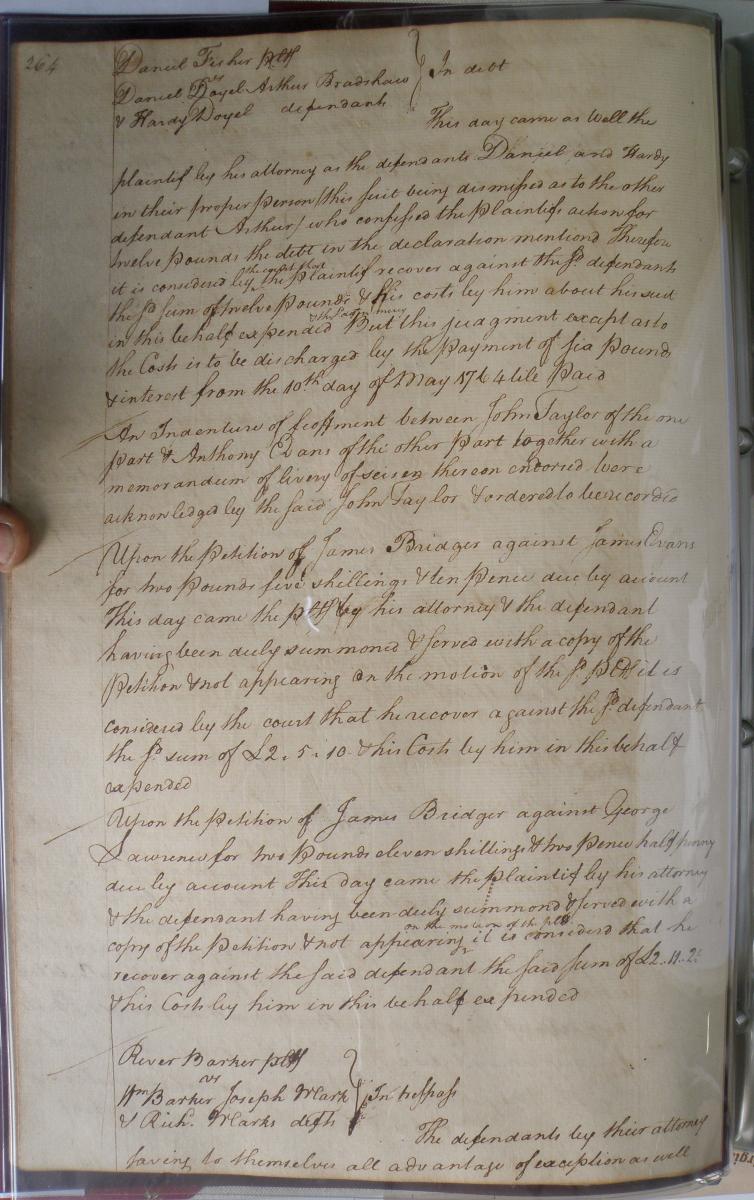 264
Daniel Fisher pltf
vs
Daniel Doyel Arthur Bradshaw
& Hardy Doyel defendants
In debt
This day came as well the
plaintif by his attorney as the defendants Daniel and Hardy
in their proper person (this suit being dismissed as to the other
defendant Arthur) who confessed the plaintifs action for
twelve pounds the debt in the declaration mentiond Therefore
it is considered by the court that the plaintif recover against the sd. defendants
the sd sum of twelve pounds & his costs by him about his suit
in this behalf expended & the sd in mercy But this judgment except as to
the Costs is to be discharged by the payment of six pounds
& interest from the 10th day of May 1764 tile Paid
An Indenture of feoffment between John Taylor of the one
part & Anthony Evans of the other part together with a
memorandum of livery of seisen thereon endorsed were
acknowledged by the said John Taylor & ordered to be recorded
Upon the petition of James Bridger against James Evans
for two pounds five shillings & ten pence due by account
This day came the pltf by his attorney & the defendant
having been duly summoned & served with a copy of the
Petition & not appearing on the motion of the sd. pltf it is
considered by the court that he recover against the sd. defendant
the sd sum of £2.5.10 & his Costs by him in this behalf
expended
Upon the petition of James Bridger against George
Lawrence for two pounds eleven shillings & two pence half penny
due by account This day came the plaintif by his attorney
& the defendant having been duly summond & served with a
copy of the petition & not appearing on the motion of the pltf it is considerd that he
recover against the said defendant the said sum of £2.11.2½
& his Costs by him in this behalf expended
River Barker pltf
vs
Wm Barker Joseph Mark
& Rich. Marks defts
In trespass
The defendants by their attorney
saving to themselves all advantage of exception as well